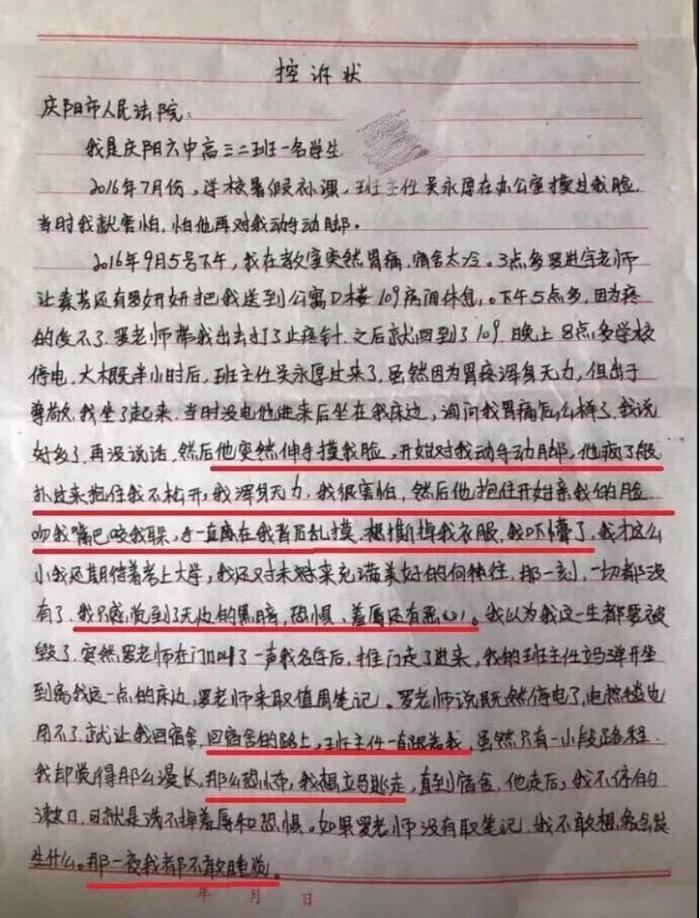 控诉状
庆阳市人民法院:
我是庆阳六中高三二班一名学生
2016年7月份,学校暑假补课,班主任吴永厚在办公室摸过我脸,
当时我就害怕,怕他再对我动手动脚。
2016年9月5号下午,我在教室突然胃痛,宿舍太冷。3点多罗进宇老师
让秦芳还有罗妍妍把我送到公寓D楼109房间休息。下午5点多,因为疼
的受不了,罗老师带我出去打了止疼针,之后就回到了109,晚上8点多学校
停电,大概半小时后,班主任吴永厚过来了,虽然因为胃疼浑身无力,但出于
尊敬,我坐了起来,当时没电他进来后坐在我床边,询问我胃痛怎么样了,我说
好多了,再没说话,然后他突然伸手摸我脸,开始对我动手动脚,他疯了般
扑过来抱住我不松开,我浑身无力,我很害怕,然后他抱住开始亲我的脸
吻我嘴巴咬我耳朵,手一直在我背后乱摸,想撕掉我衣服,我吓懵了,我才这么
小我还期待着考上大学,我还对未来充满美好的向往,那一刻,一切都没
有了,我只感觉到了无边的黑暗,恐惧,羞辱还有恶心!我以为我这一生都要被
毁了,突然罗老师在门口叫了一声我名字后,推门走了进来,我的班主任立马弹开坐
到离我远一点的床边,罗老师来取值周笔记。罗老师说既然停电了,电热毯也
用不了,就让我回宿舍,回宿舍的路上,班主任一直跟着我,虽然只有一小段路程
我却觉得那么漫长,那么恐怖,我想立马逃走,直到宿舍,他走后,我不停的
漱口,可就是洗不掉羞辱和恐惧。如果罗老师没有取笔记,我不敢想,会发
生什么。那一夜我都不敢睡觉。
年 月 日